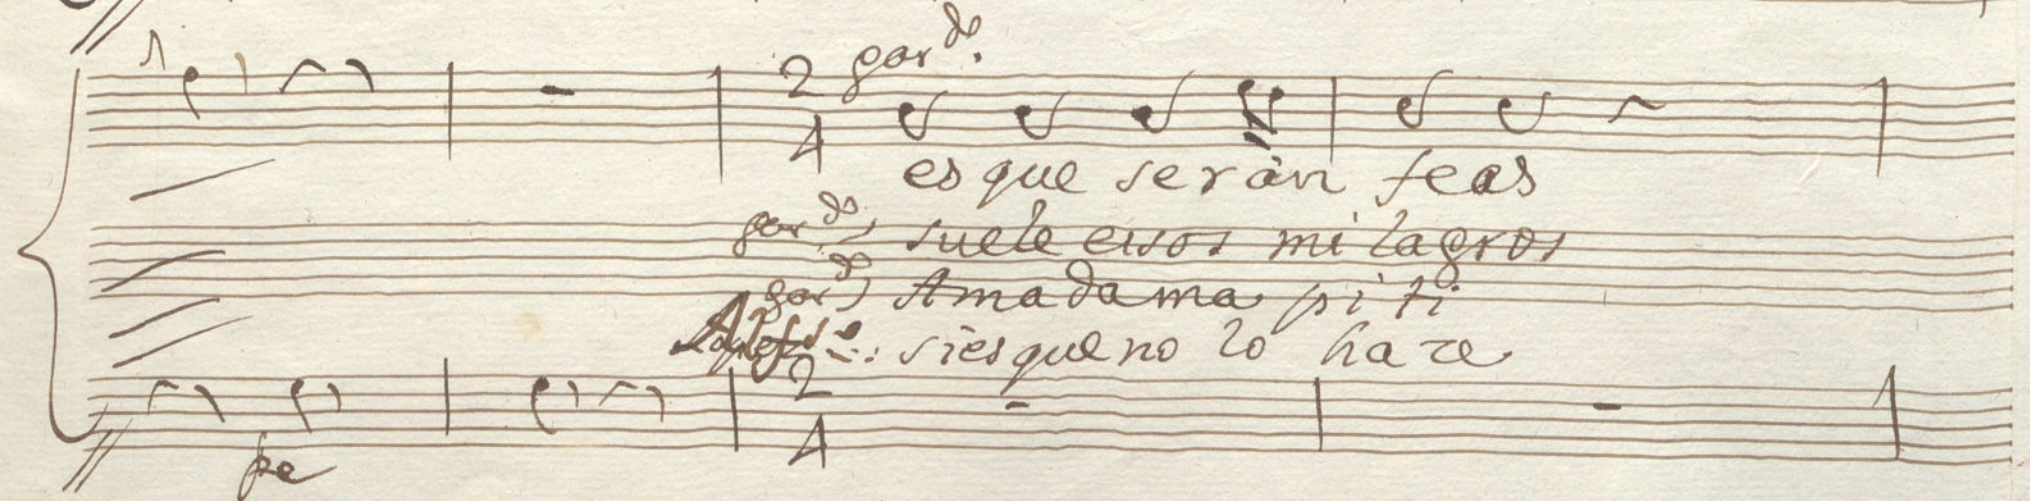 2 gor.do
4
es que serán feas
gor.do suele esos milagros
gor.do A madama pi ti
si es que no lo hace
2
4
pe